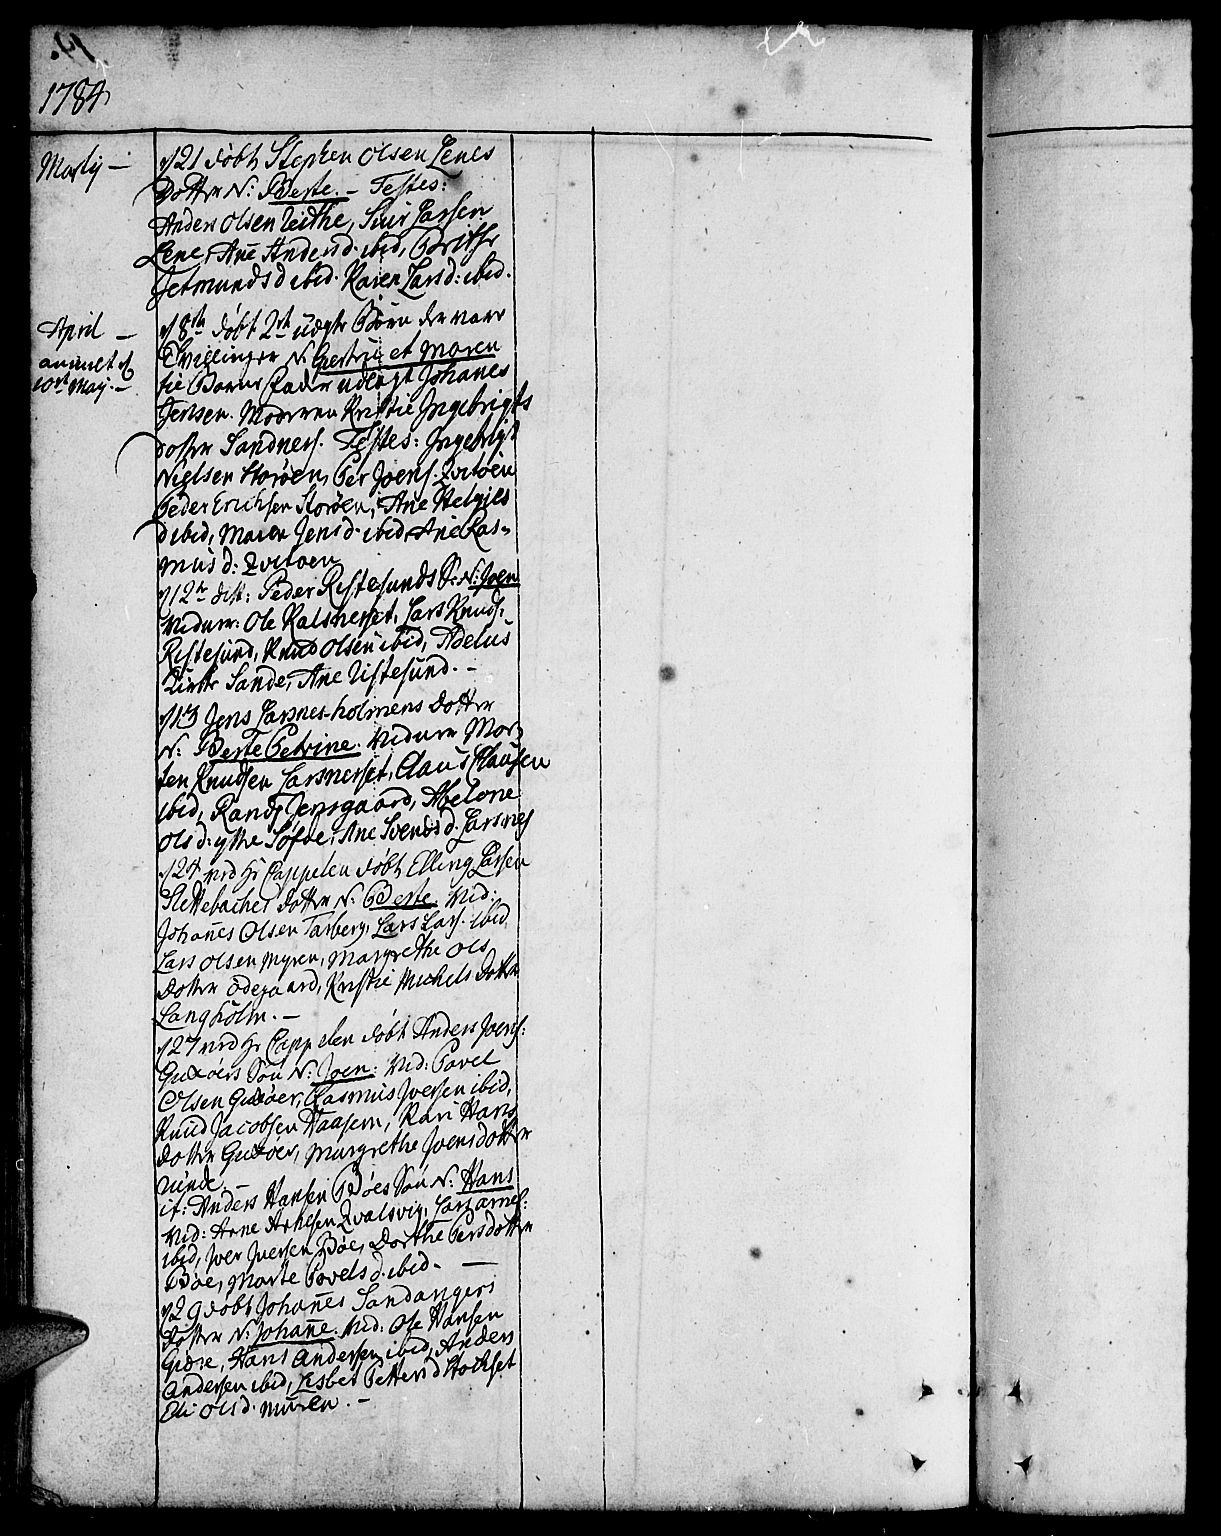 1784
Martij –
d 21 døbt Stephen Olsen Lenes
Dotter N: Berte. – Testes:
Anders Olsen, Siur Larsen
Lene, Ane Andersd. ibid, Brithe
Jetmundsd ibid. Karen Larsd: ibid.
April –
10de Maij. –
d 8de døbt 2de uægte Børn der vare
Tvillinger N. Giertru et Maren
tie Barne Fader udlagt Johanes
Jensen. Moderen Kristie Ingebrigts
dotter Sandnes. Testes: Ingebrigt
Nielsen Storøen, Per Joens. Qvitøen
Peder Erichsen Storøen, Ane Helgies
d ibid, Maren Jensd. ibid, Ane Ras-
musd: Qvitøen
d 12te dito: Peder Ristesunds S. N: Joen
Vidner: Ole Ralsnerset, Lars Knuds.
Ristesund, Knud Olsen ibid, Adelus
Sande, Ane Ristesund. –
d 13 Jens Larsnes-holmens dotter
N: Berte Petrine. Vidner Mor-
ten Knudsen Larsnerset, Claus Clausen
ibid, Randj Jensgaard, Abelone
Olsd. ytre Søfde, Ane Svendsd. Larsnes
d 24 ved Hr Cappelen døbt Elling Larsen
Slettebaches dotter N. Berte. Vid:
Johañes Olsen Tarberg, Lars Lars. ibid.
Lars Olsen Myren, Margrethe Ols
Dotter Ødegaard, Kristie Michels dotter
Langholm. –
d 27 ved Hr Cappelen døbt Anders Joens:
Gudøers Søn N: Joen: Vid: Povel
Olsen, Rasmus Iversen ibid,
Knud Jacobsen, Kari Hans
dotter, Margrethe Joensdotter
Runde. –
it: Anders Hansen Bøes Søn N: Hans
Vid: Arne Arnesen Qvalsvig, Lars Arnes:
ibid, Iver Iversen Bøe, Dorthe Persdotter
Bøe, Marte Povelsd. ibid. –
d 29 døbt Johañes Sandangers
dotter N: Johañe. Vid: Ole Hansen
Giære, Hans Andersen ibid, Anders
Andersen ibid, Lisbet Pettersd Stochset
Eli Olsd. Muren. –